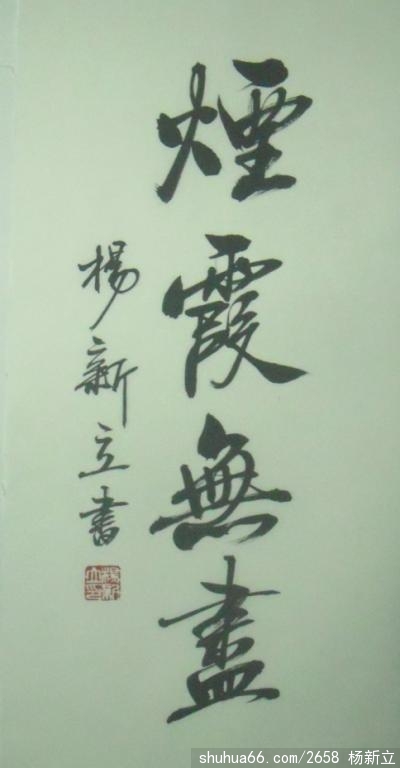 煙霞無盡
楊新立書
楊新立印
shuhua66.com/2658 杨新立